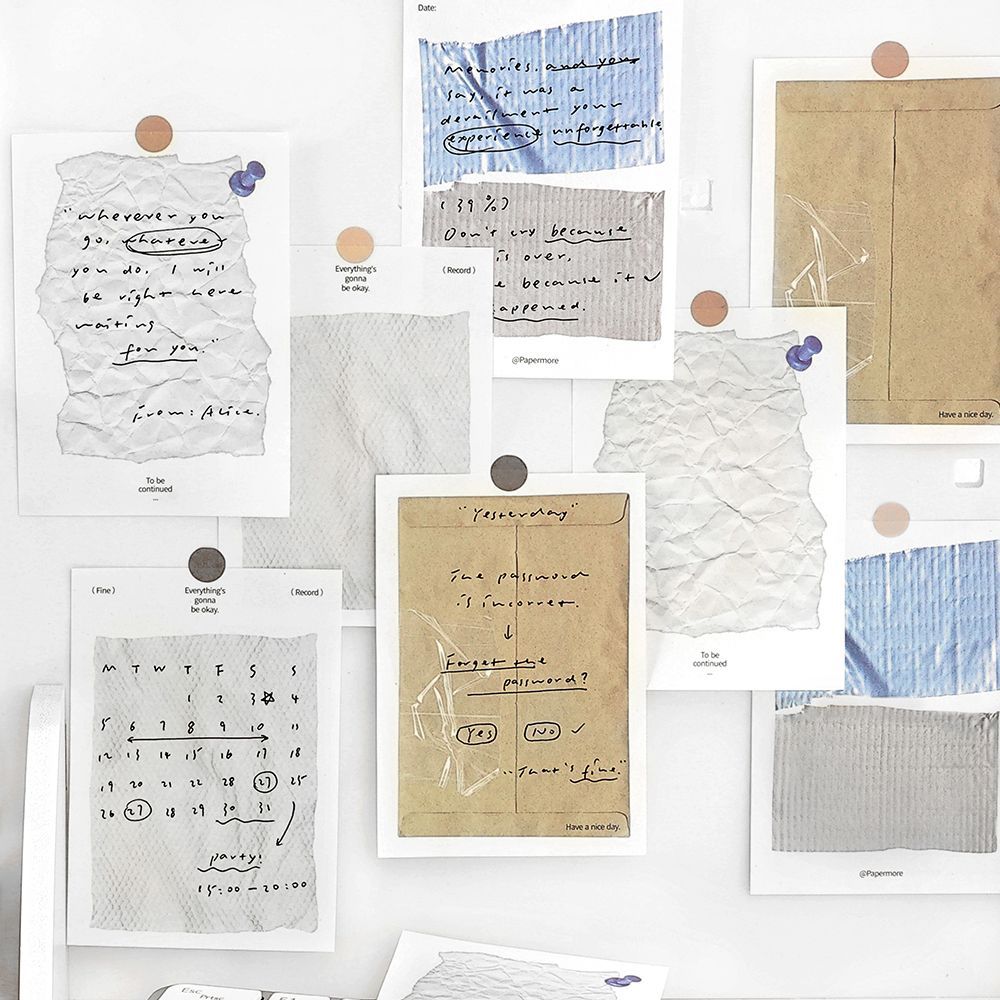 Date:
Memories. and you
say, it was a
derailment your
experience unforgettable.
(39%)
Don't cry because
is over,
e because it
appened.
@Papermore
"wherever you
go, whatever
you do, I will
be right here
waiting
for you."
From: Alice.
To be
continued
...
Everything's
gonna
be okay.
(Record)
Have a nice day.
To be
continued
...
(Fine)
Everything's
gonna
be okay.
(Record)
M T W T F S S
1 2 3 4
5 6 7 8 9 10 11
12 13 14 15 16 17 18
19 20 21 22 28 27 25
26 27 28 29 30 31
party!
15:00 - 20:00
"Yesterday"
The password
is incorret.
Forget the
password?
Yes No
"That's fine."
Have a nice day.
@Papermore
Esc